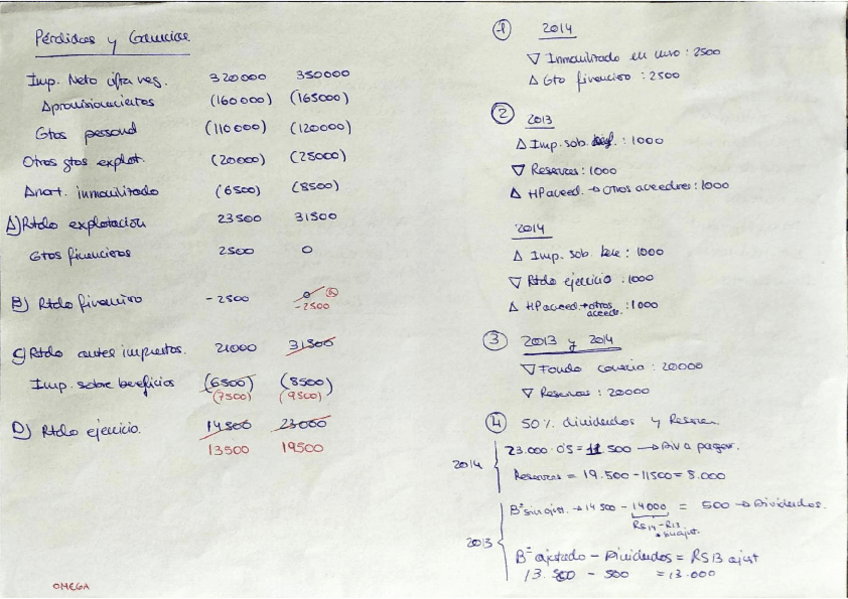 Pérdidas y Ganancias
Imp. Neto cifra neg. 320000 350000
Aprovisionamientos (160000) (165000)
Gtos personal (110000) (120000)
Otros gtos explot. (20000) (25000)
Amort. inmovilizado (6500) (8500)
A) Rtdo explotación 23500 31500
Gtos financieros 2500 0
B) Rtdo financiero -2500 0
-2500
C) Rtdo antes impuestos. 21000 31500
Imp. sobre beneficios (6500) (8500)
(7500) (9500)
D) Rtdo ejercicio. 14500 23000
13500 19500
OMEGA
1 2014
▽ Inmovilizado en curso : 2500
△ Gto financiero : 2500
2 2013
△ Imp. sob. : 1000
▽ Reservas : 1000
△ HP acreed. → Otros acreedores : 1000
2014
△ Imp. sob. bene : 1000
▽ Rtdo ejercicio : 1000
△ HP acreed → otros acreed. : 1000
3 2013 y 2014
▽ Fondo comercio : 20000
▽ Reservas : 20000
4 50% dividendos y Reservas
2014
23.000 · 0'5 = 11.500 → Div a pagar.
Reservas = 19.500 - 11500 = 8.000
2013
Bº sin ajust. → 14500 - 14000 = 500 → Dividendos.
RS14 - R13
sin ajust.
Bº ajustado - Dividendos = RS13 ajust
13.500 - 500 = 13.000